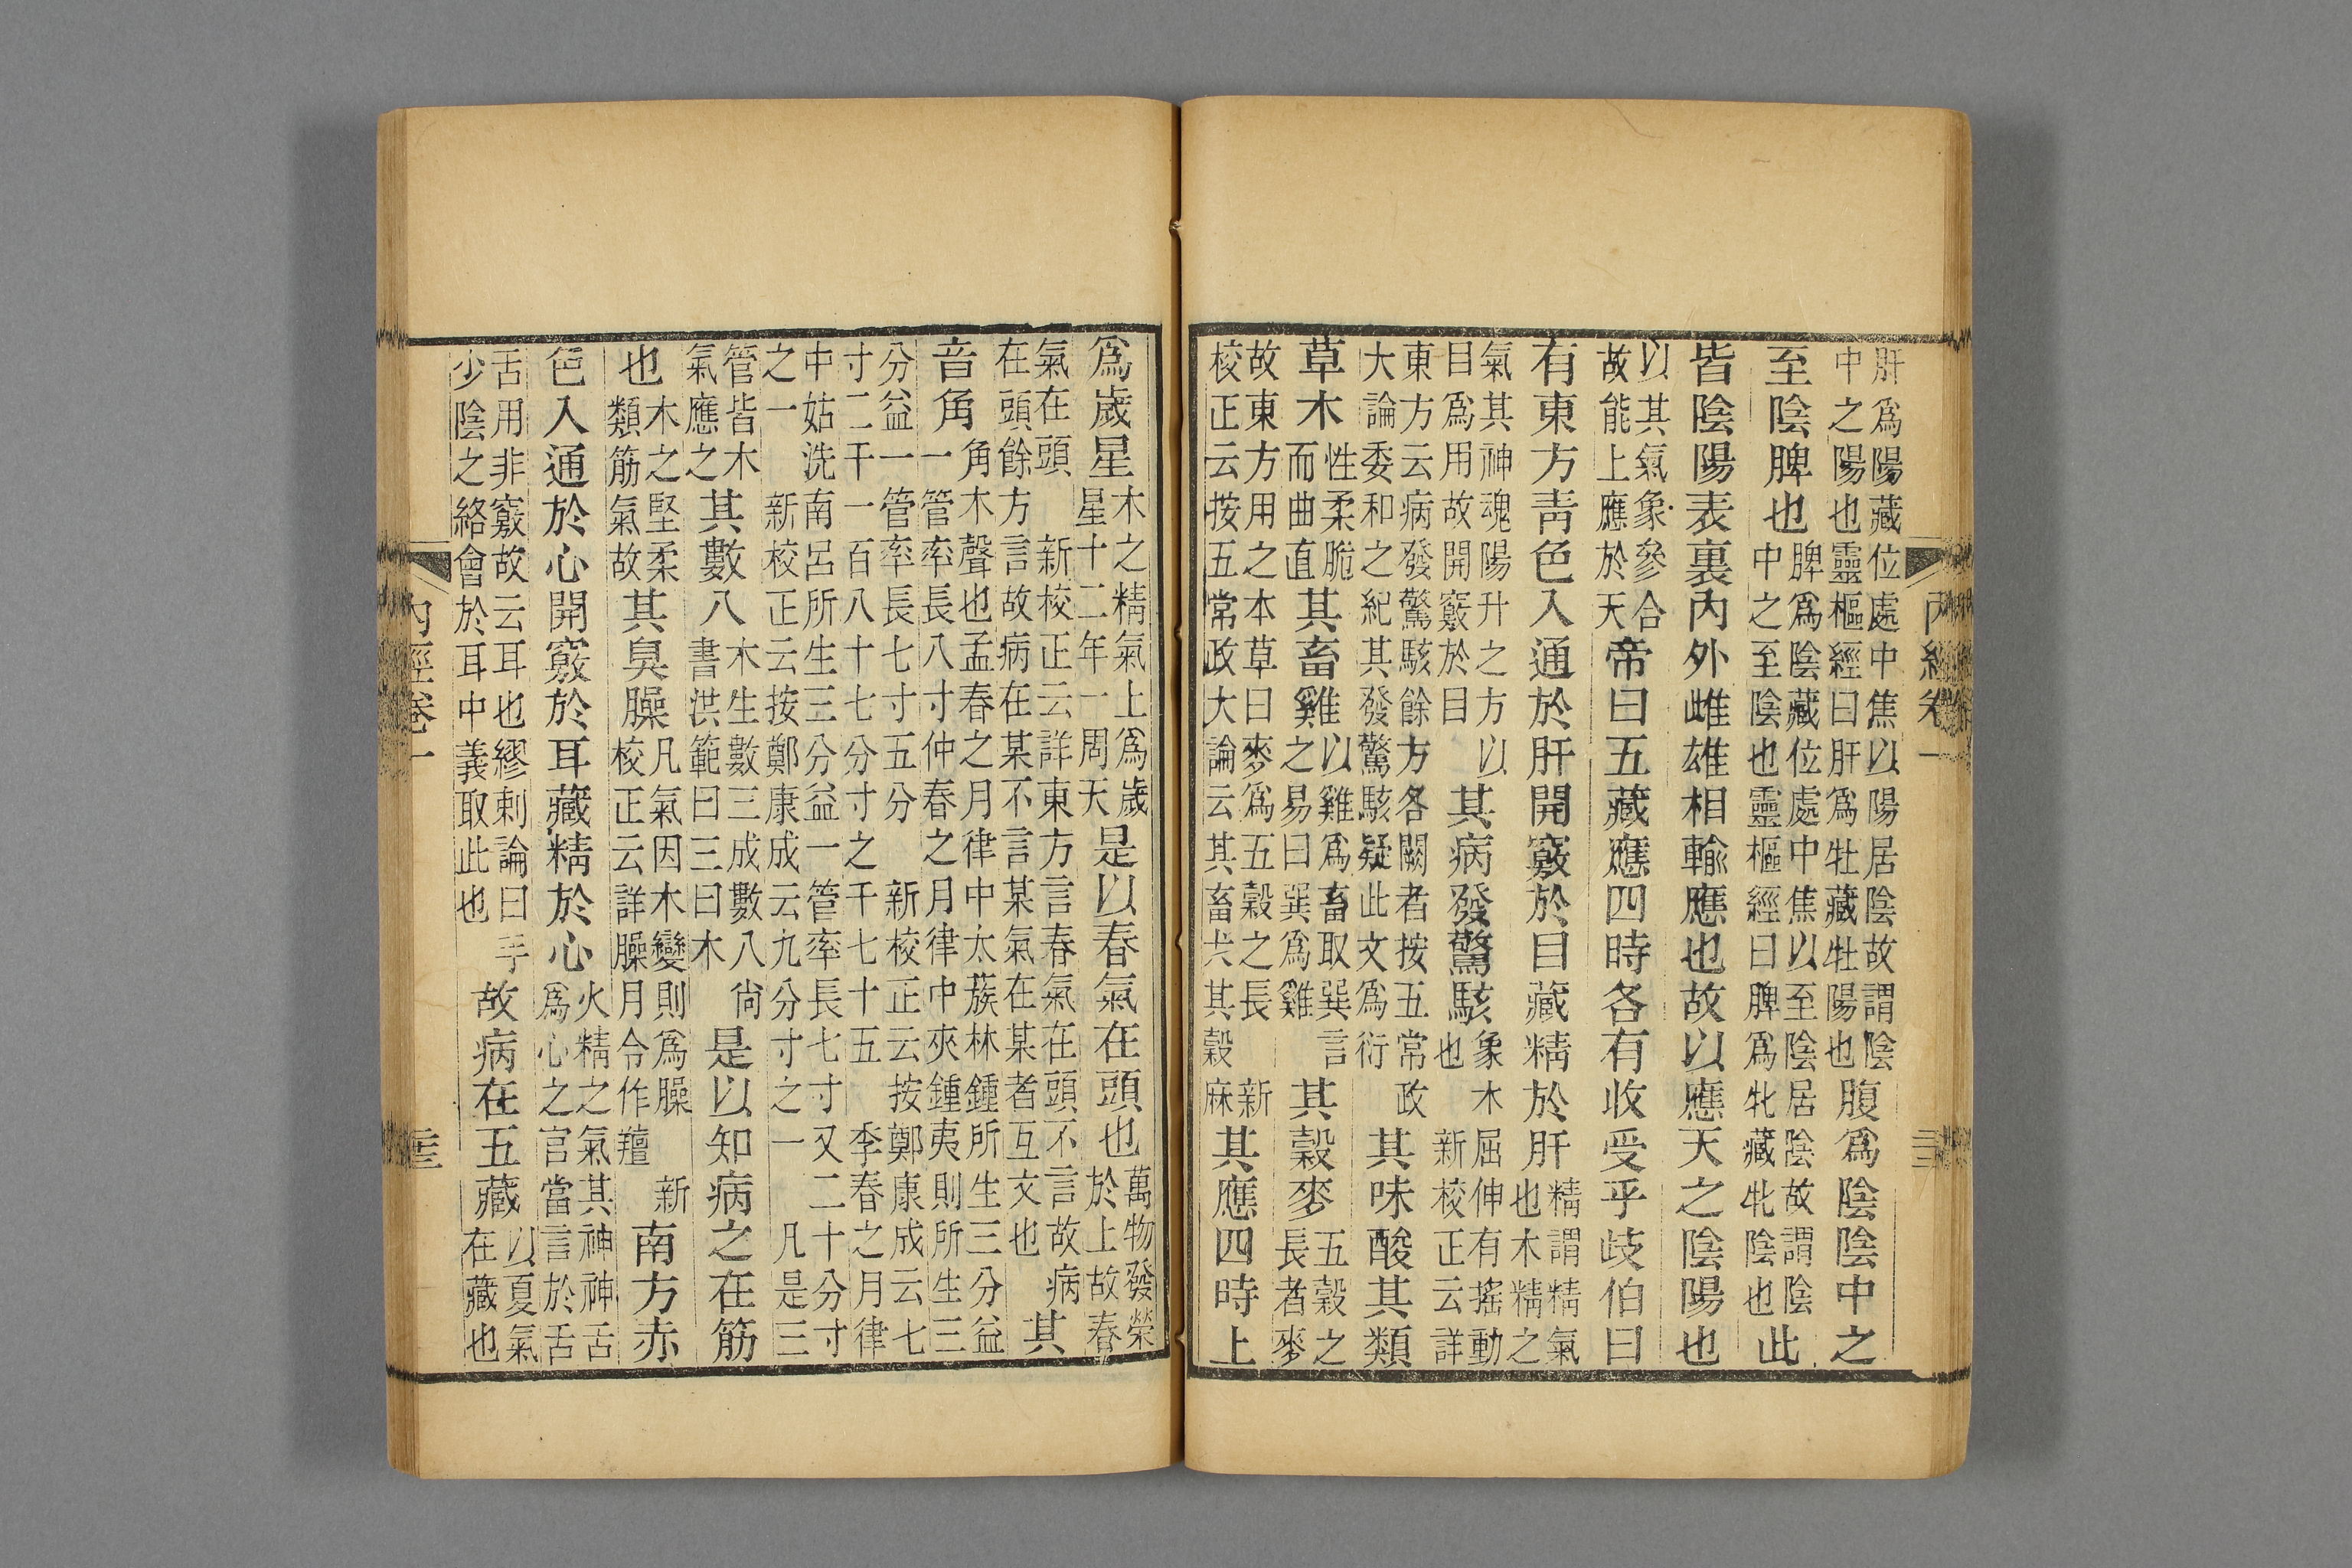 內經卷一
肝爲陽藏位處中焦以陽居陰故謂陰中之陽也靈樞經曰肝爲牡藏牡陽也腹爲陰陰中之
至陰脾也脾爲陰藏位處中焦以至陰居陰故謂陰中之至陰也靈樞經曰脾爲牝藏牝陰也此
皆陰陽表裏內外雌雄相輸應也故以應天之陰陽也
以其氣象參合故能上應於天帝曰五藏應四時各有收受乎歧伯曰
有東方靑色入通於肝開竅於目藏精於肝精謂精氣也木精之
氣其神魂陽升之方以目爲用故開竅於目其病發驚駭象木屈伸有搖動也新校正云詳
東方云病發驚駭餘方各闕者按五常政大論委和之紀其發驚駭疑此文爲衍其味酸其類
草木性柔脆而曲直其畜雞以雞爲畜取巽言之易曰巽爲雞其穀麥五穀之長者麥
故東方用之本草曰麥爲五穀之長新校正云按五常政大論云其畜犬其穀麻其應四時上
爲歲星木之精氣上爲歲星十二年一周天是以春氣在頭也萬物發榮於上故春
氣在頭新校正云詳東方言春氣在頭不言故病在頭餘方言故病在某不言某氣在某者互文也其
音角角木聲也孟春之月律中太蔟林鍾所生三分益一管率長八寸仲春之月律中夾鍾夷則所生三
分益一管率長七寸五分新校正云按鄭康成云七寸二千一百八十七分寸之千七十五季春之月律
中姑洗南呂所生三分益一管率長七寸又二十分寸之一新校正云按鄭康成云九分寸之一凡是三
管皆木氣應之其數八木生數三成數八尙書洪範曰三曰木是以知病之在筋
也木之堅柔類筋氣故其臭臊凡氣因木變則爲臊新校正云詳臊月令作羶南方赤
色入通於心開竅於耳藏精於心火精之氣其神神舌爲心之官當言於舌
舌用非竅故云耳也繆刺論曰手少陰之絡會於耳中義取此也故病在五藏以夏氣在藏也
內經卷一